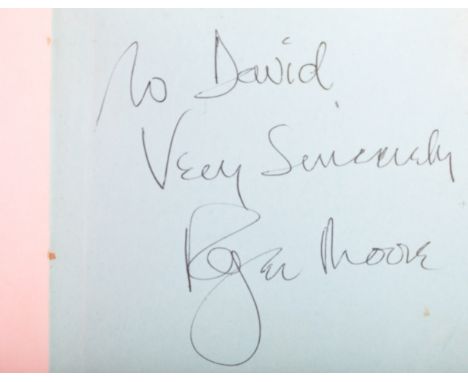 To David
Very Sincerely
Roger Moore